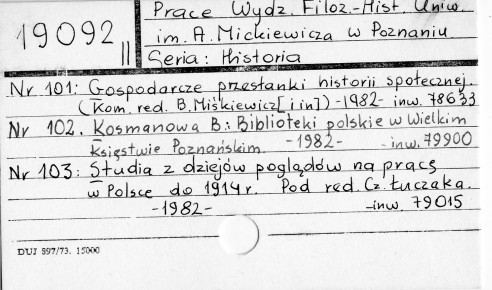 Prace Wydz. Filoz.-Hist. Uniw.
19092 II
im. A. Mickiewicza w Poznaniu
Seria: Historia
Nr 101: Gospodarcze przesłanki historii społecznej.
(Kom. red. B. Miśkiewicz [i in]) -1982- inw. 78633
Nr 102. Kosmanowa B.: Biblioteki polskie w Wielkim
Księstwie Poznańskim. -1982- -inw. 79900
Nr 103: Studia z dziejów poglądów na pracę
w Polsce do 1914 r. Pod red. Cz. Łuczaka.
-1982- -inw. 79015
DUJ 897/73. 15000